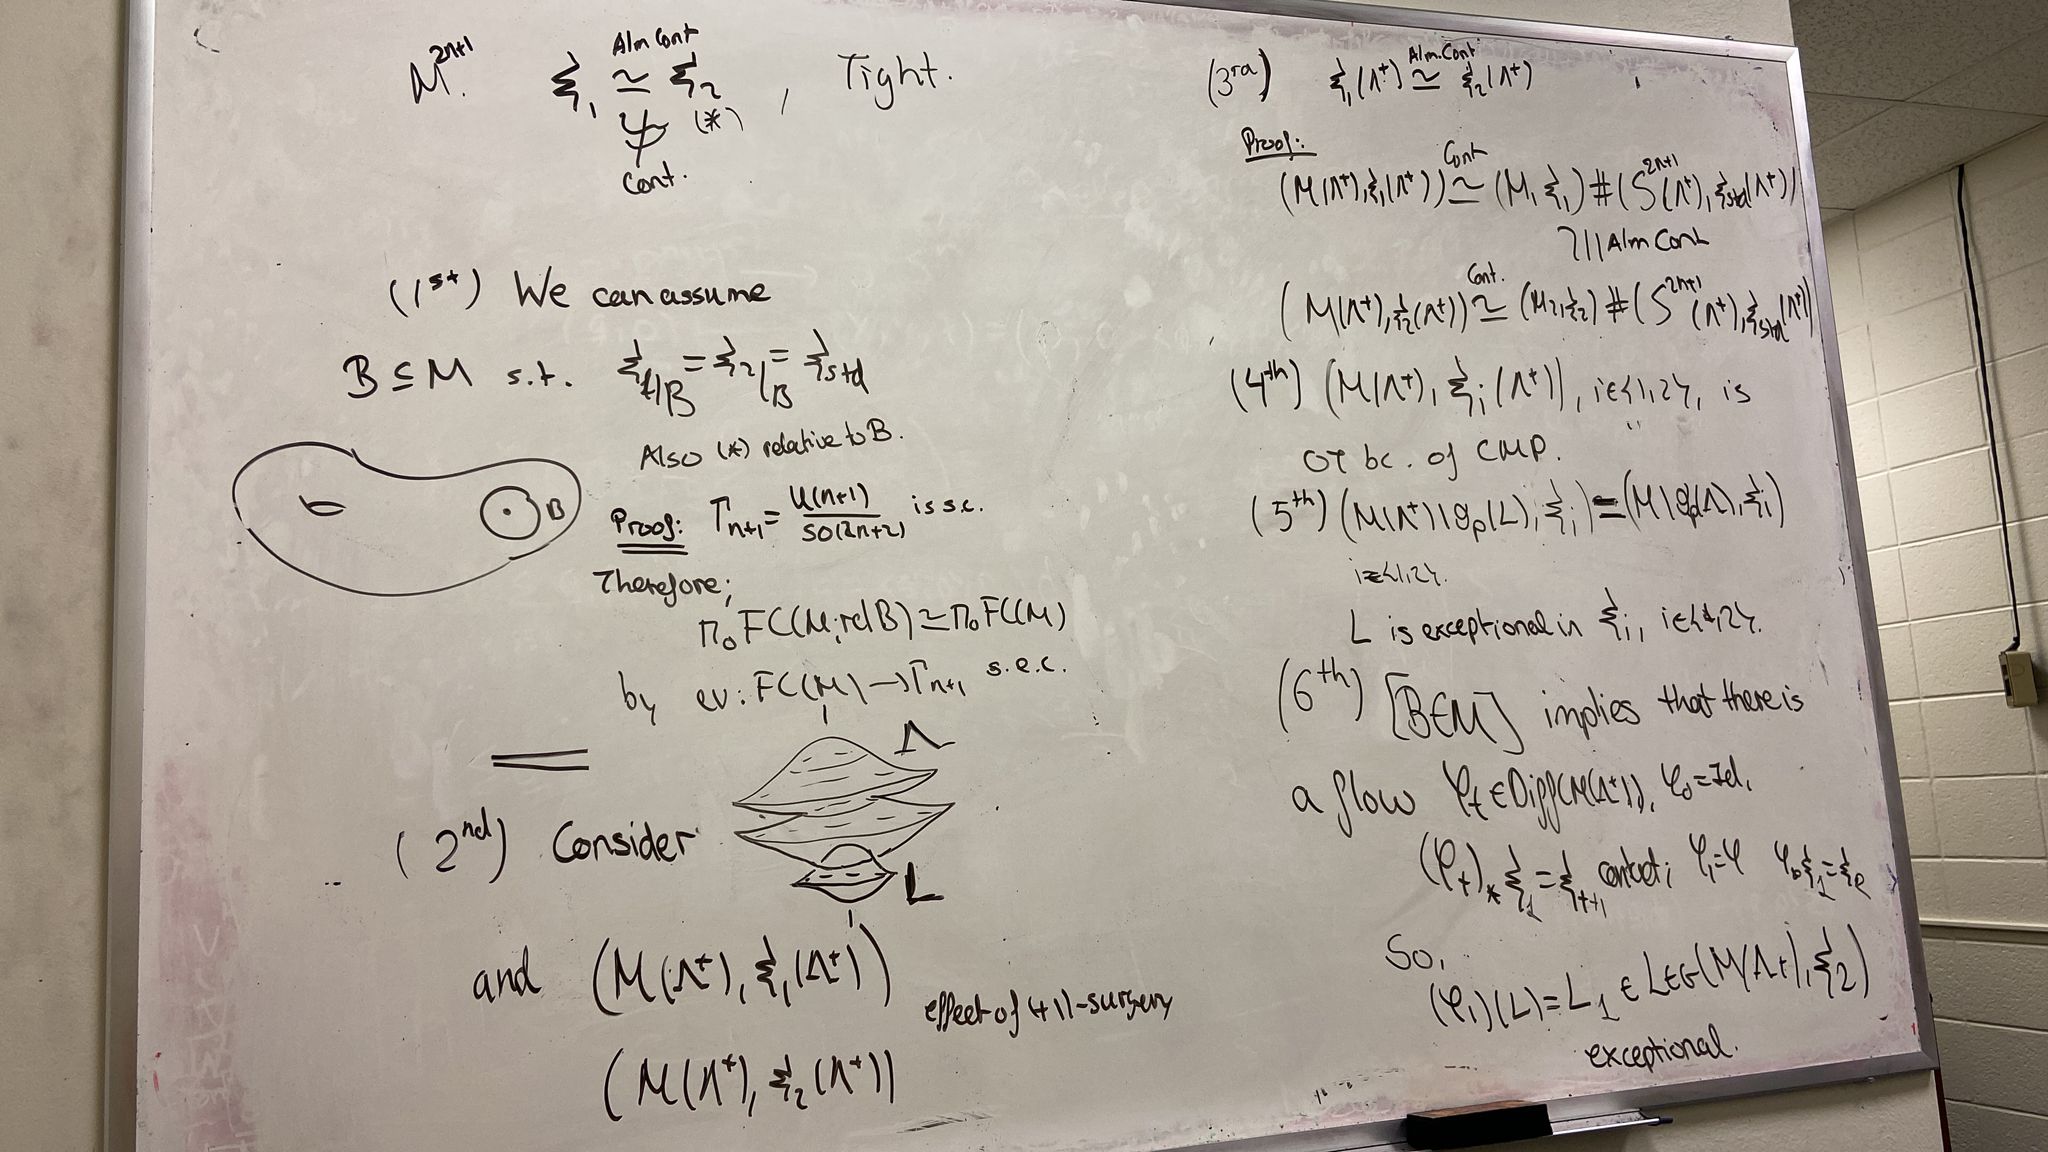 M^{2n+1}. ξ_1 ≃^{Alm Cont} ξ_2 (*), Tight.
≄
Cont.
(1^{st}) We can assume
B ⊆ M s.t. ξ_1|_B = ξ_2|_B = ξ_std
Also (*) relative to B.
B
Proof: Γ_{n+1} = U(n+1)/SO(2n+2) is s.c.
Therefore;
π_0 FC(M; rel B) ≃ π_0 FC(M)
by ev: FC(M) → Γ_{n+1} s.e.c.
Λ
(2^{nd}) Consider
L
and (M(Λ^+), ξ_1(Λ^+))
effect of (+1)-surgery
(M(Λ^+), ξ_2(Λ^+))
(3^{rd}) ξ_1(Λ^+) ≃^{Alm.Cont} ξ_2(Λ^+)
Proof:
(M(Λ^+), ξ_1(Λ^+)) ≃^{Cont} (M, ξ_1) # (S^{2n+1}(Λ^+), ξ_std(Λ^+))
≀|| Alm Cont
(M(Λ^+), ξ_2(Λ^+)) ≃^{Cont.} (M, ξ_2) # (S^{2n+1}(Λ^+), ξ_std(Λ^+))
(4^{th}) (M(Λ^+), ξ_i(Λ^+)), i∈{1,2}, is
OT bc. of CMP.
(5^{th}) (M(Λ^+)\Op(L), ξ_i) = (M\Op(Λ), ξ_i)
i∈{1,2}.
L is exceptional in ξ_i, i∈{1,2}.
(6^{th}) [BEM] implies that there is
a flow φ_t ∈ Diff(M(Λ^+)), φ_0 = Id,
(φ_t)_* ξ_1 = ξ_{t+1} contact; φ_1 = φ φ_* ξ_1 = ξ_2
So,
(φ_1)(L) = L_1 ∈ LEG(M(Λ^+), ξ_2)
exceptional.